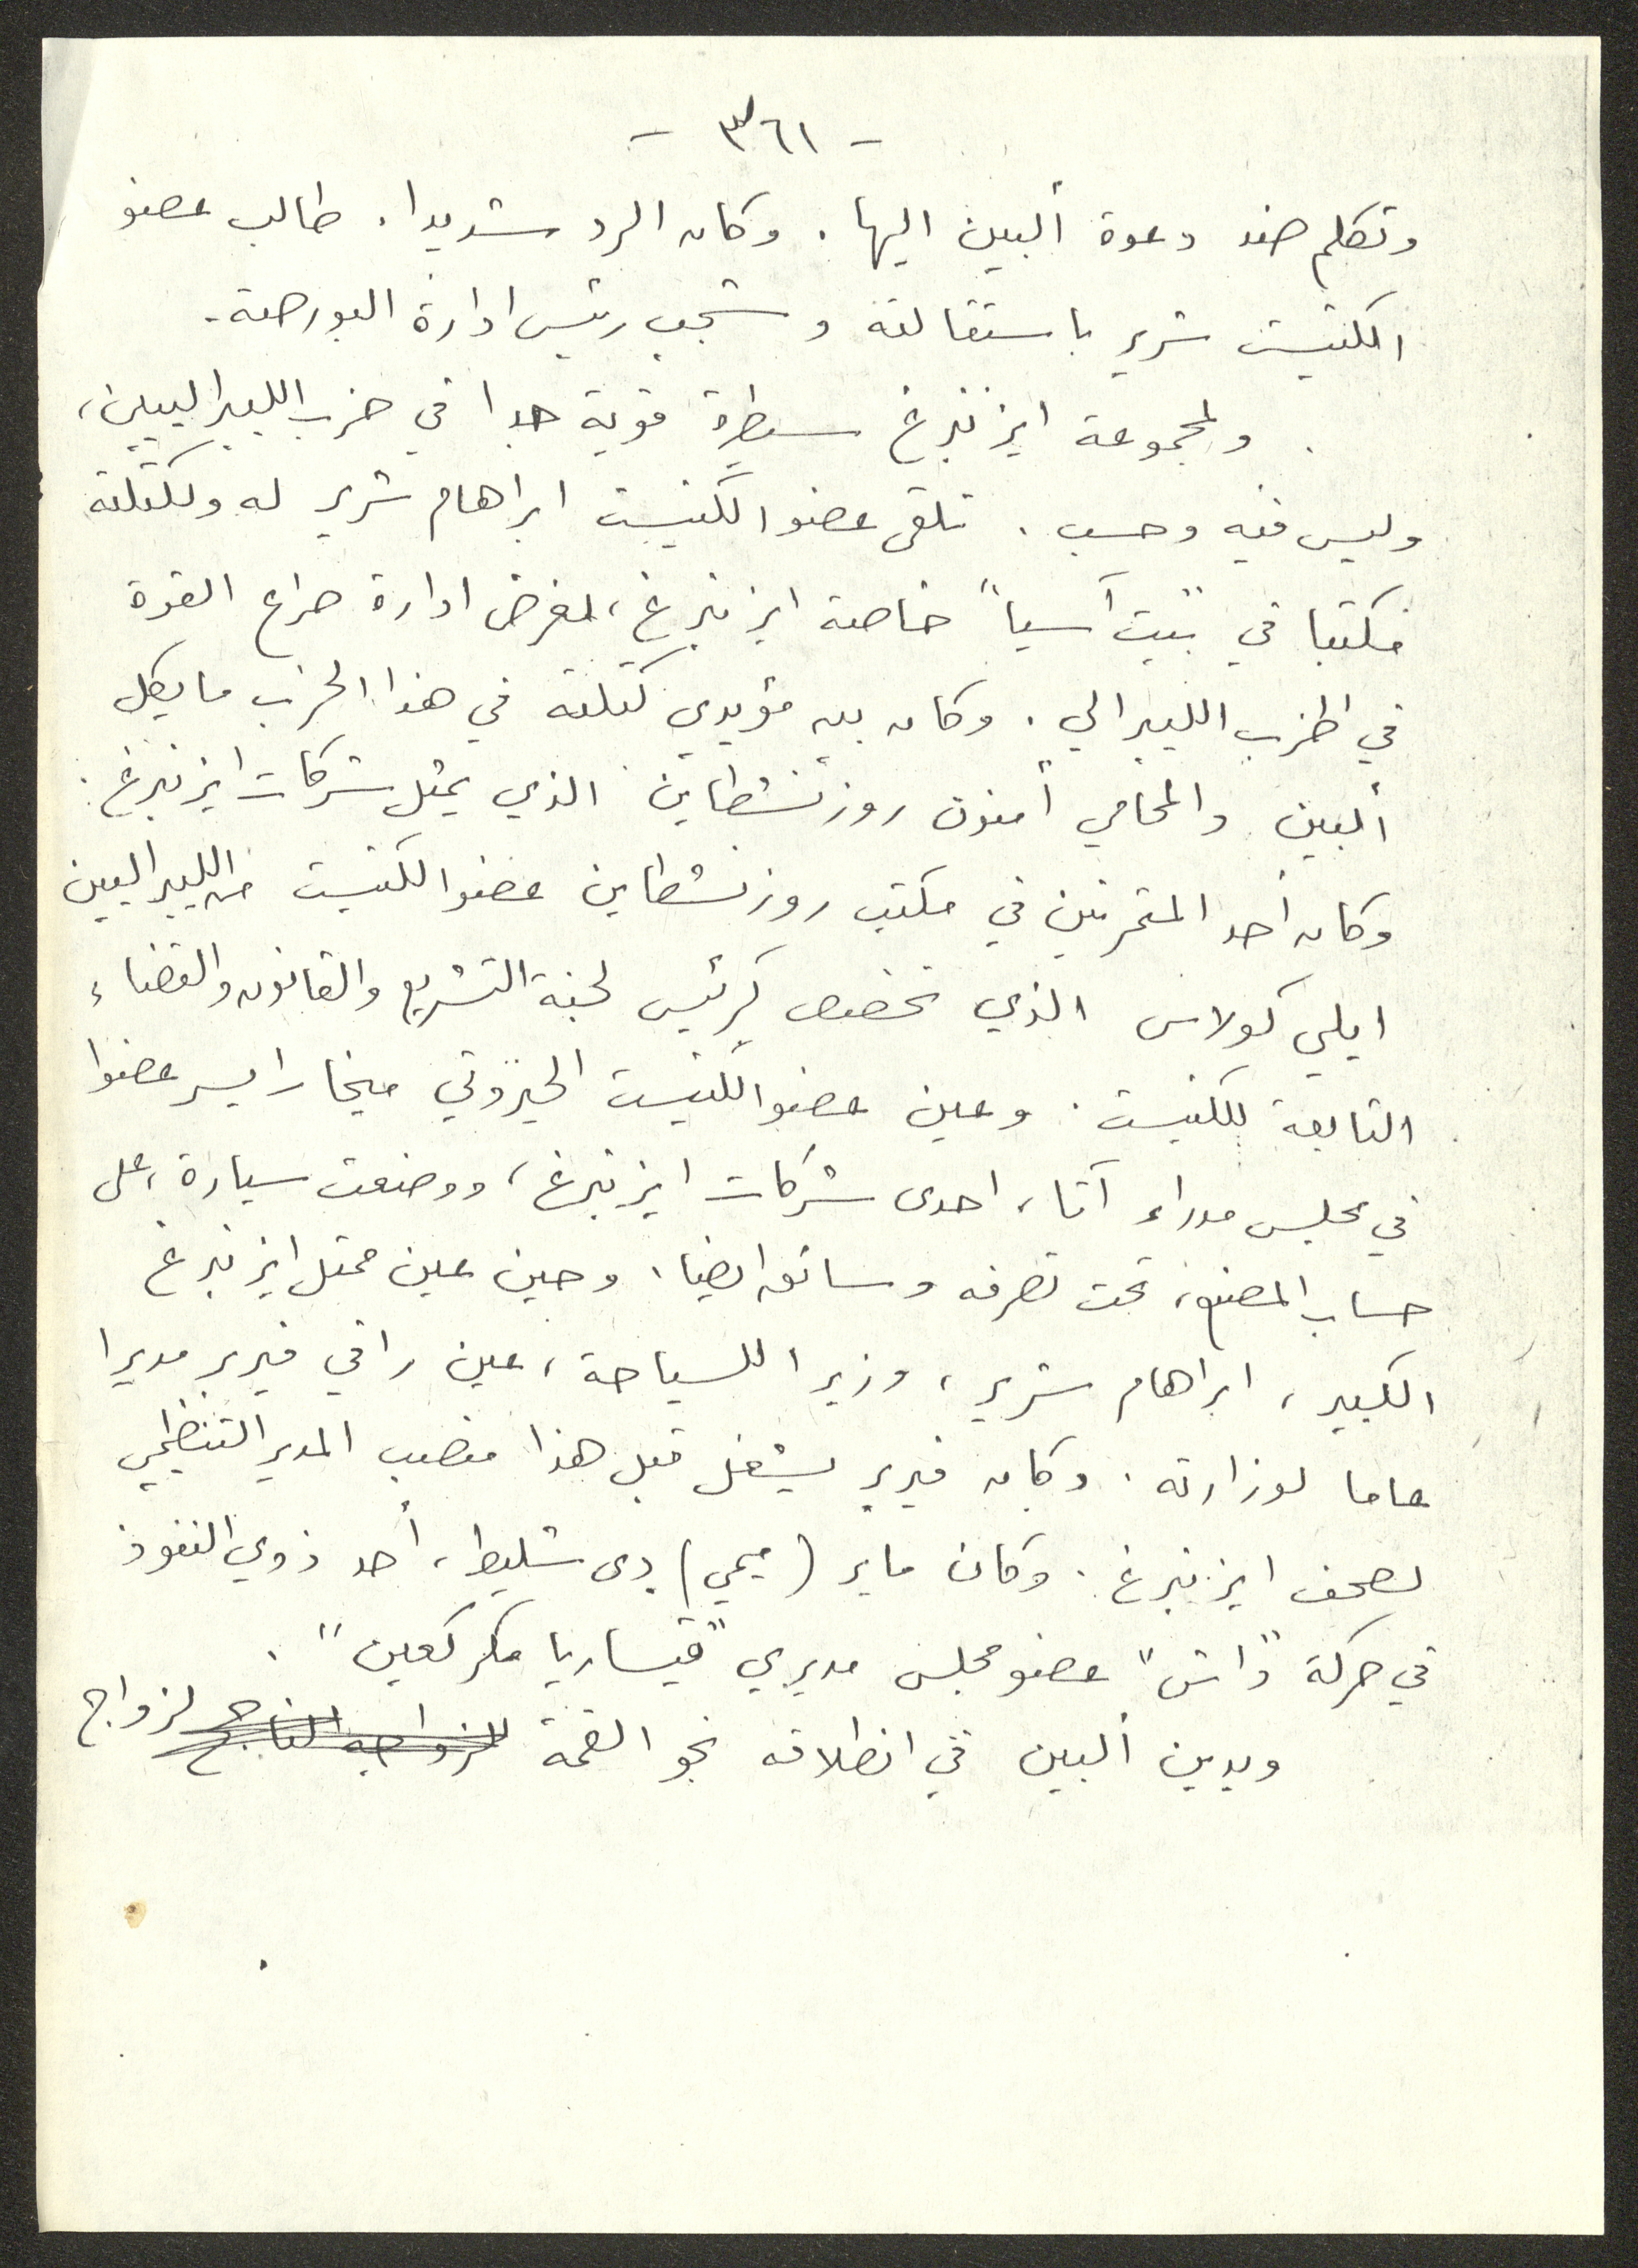 - ٣٦١ -
وتكلم ضد دعوة ألبين اليها . وكان الرد شديدا . طالب عضو
الكنيست شرير باستقالته وشجب رئيس ادارة البورصة .
ولمجموعة ايزنبرغ سيطرة قوية جدا في حزب الليبراليين ،
وليس فيه وحسب . تلقى عضو الكنيست ابراهام شرير له ولكتلته
مكتبا في "بيت آسيا" خاصة ايزنبرغ ، لغرض ادارة صراع القوة
في الحزب الليبرالي . وكان بين مؤيدي كتلته في هذا الحزب مايكل
ألبين والمحامي أمنون روزنشطاين الذي يمثل شركات ايزنبرغ .
وكان أحد المتمرنين في مكتب روزنشطاين عضو الكنيست من الليبراليين
ايلي كولاس الذي تخصص كرئيس لجنة التشريع والقانون والقضاء
التابعة للكنيست . وعين عضو الكنيست الحيروتي ميخا رايسر عضوا
في مجلس مدراء آتا ، احدى شركات ايزنبرغ ، ووضعت سيارة ، على
حساب المصنع ، تحت تصرفه وسائق ايضا . وحين عين ممثل ايزنبرغ
الكبير ، ابراهام شرير ، وزيرا للسياحة ، عين رافي فيربر مديرا
عاما لوزارته . وكان فيربر يشغل قبل هذا منصب المدير التنظيمي
لصحف ايزنبرغ . وكان ماير (ميمي) دى شليط ، أحد ذوي النفوذ
في حركة "داش" عضو مجلس مديري "قيساريا مكركعين" .
ويدين ألبين في انطلاقه نحو القمة لزواجه الناجح لزواج